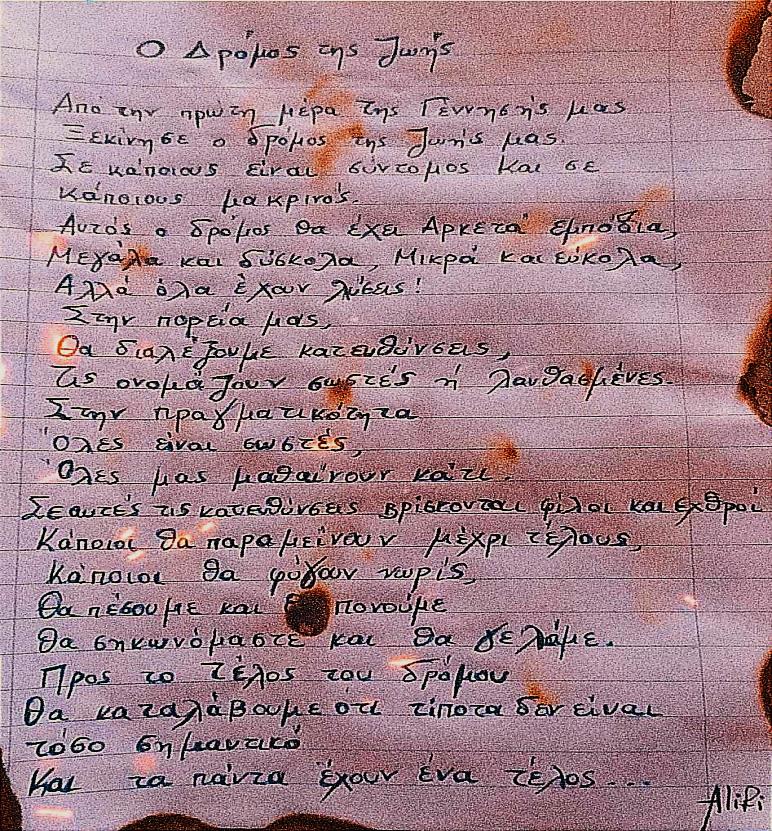 Ο Δρόμος της Ζωής
Από την πρώτη μέρα της Γέννησής μας
Ξεκίνησε ο δρόμος της Ζωής μας.
Σε κάποιους είναι σύντομος και σε
κάποιους μακρινός.
Αυτός ο δρόμος θα έχει Αρκετά εμπόδια,
Μεγάλα και δύσκολα, Μικρά και εύκολα,
Αλλά όλα έχουν λύσεις!
Στην πορεία μας,
Θα διαλέξουμε κατευθύνσεις,
Τις ονομάζουν σωστές ή λανθασμένες.
Στην πραγματικότητα
Όλες είναι σωστές,
Όλες μας μαθαίνουν κάτι.
Σε αυτές τις κατευθύνσεις βρίσκονται φίλοι και εχθροί
Κάποιοι θα παραμείνουν μέχρι τέλους,
Κάποιοι θα φύγουν νωρίς,
Θα πέσουμε και πονούμε
Θα σηκωνόμαστε και θα γελάμε.
Προς το τέλος του δρόμου
Θα καταλάβουμε ότι τίποτα δεν είναι
τόσο σημαντικό
Και τα πάντα έχουν ένα τέλος...
Alifi